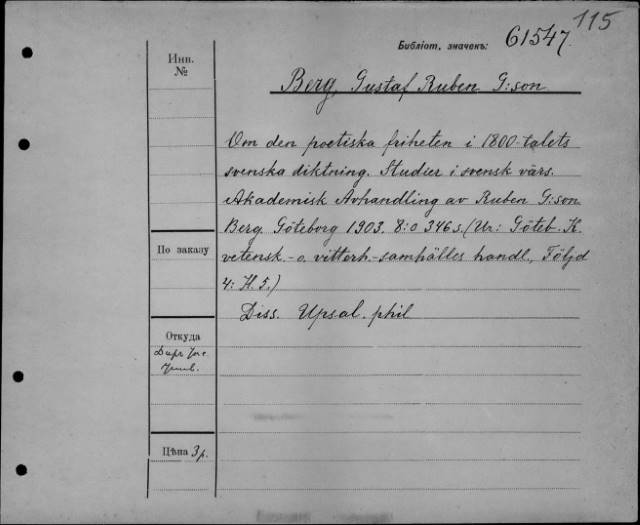 115
Библiот. значекъ: 61547.
Инв.
№
Berg, Gustaf Ruben G:son
Om den poetiska friheten i 1800-talets
svenska diktning. Studier i svensk värs.
Akademisk Avhandling av Ruben G:son
Berg. Göteborg 1903. 8:o 346 s. (Ur: Göteb. K.
vetensk.- o. vitterh.-samhälles handl., Följd
4: H. 5.)
Diss. Upsal. phil
По заказу
Откуда
Даръ
Унив.
Цѣна 3 р.